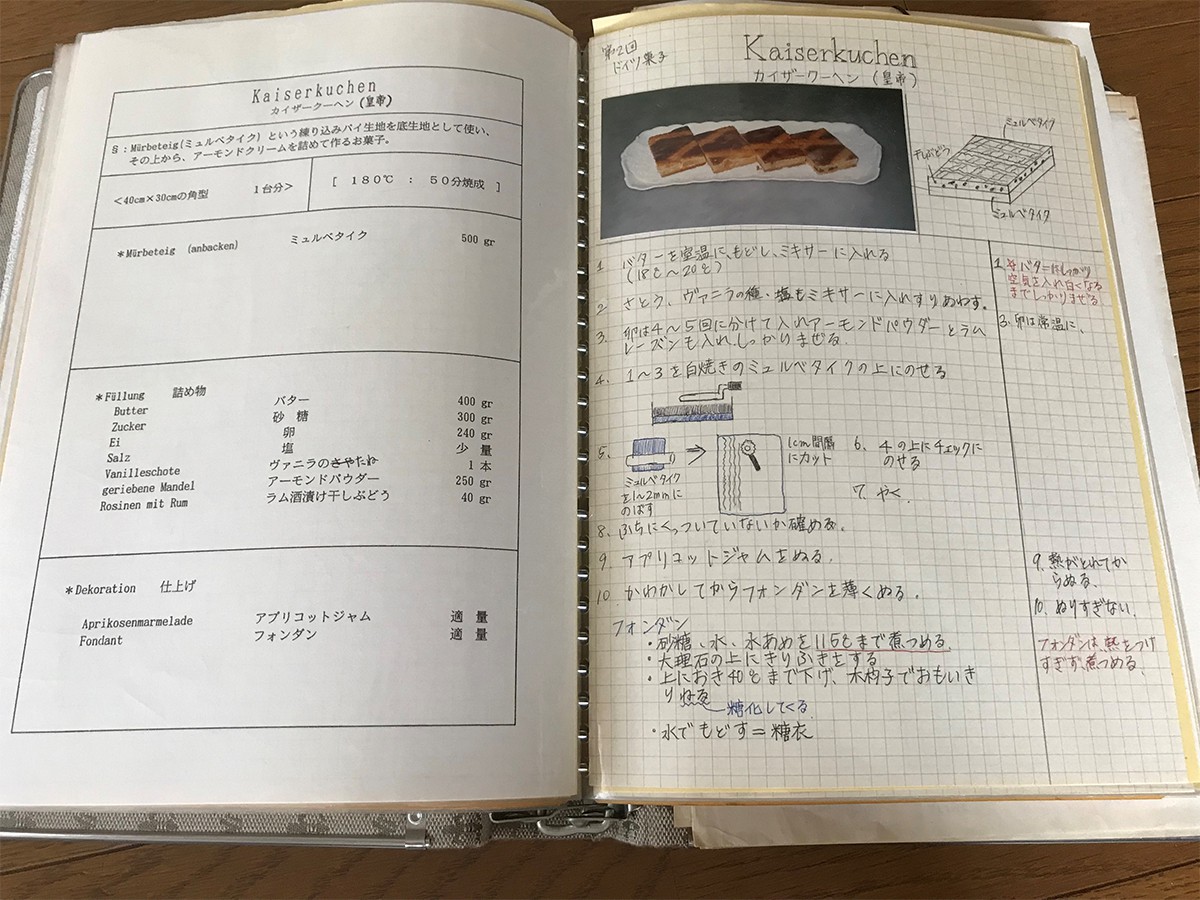 Kaiserkuchen
カイザークーヘン (皇帝)
§：Mürbeteig(ミュルベタイク) という練り込みパイ生地を底生地として使い、
その上から、アーモンドクリームを詰めて作るお菓子。
＜40cm×30cmの角型 １台分＞
［ １８０℃ ： ５０分焼成 ］
＊Mürbeteig (anbacken) ミュルベタイク 500 gr
＊Füllung 詰め物
Butter バター 400 gr
Zucker 砂 糖 300 gr
Ei 卵 240 gr
Salz 塩 少 量
Vanilleschote ヴァニラのさやたね 1 本
geriebene Mandel アーモンドパウダー 250 gr
Rosinen mit Rum ラム酒漬け干しぶどう 40 gr
＊Dekoration 仕上げ
Aprikosenmarmelade アプリコットジャム 適 量
Fondant フォンダン 適 量
第2回
ドイツ菓子
Kaiserkuchen
カイザークーヘン (皇帝)
ミュルベタイク
干しぶどう
ミュルベタイク
1 バターを室温に、もどし、ミキサーに入れる
(18℃〜20℃)
2 さとう、ヴァニラの種、塩もミキサーに入れすりあわす。
3. 卵は4〜5回に分けて入れアーモンドパウダーとラム
レーズンも入れ、しっかりまぜる.
4. 1〜3を白焼きのミュルベタイクの上にのせる
5.
ミュルベタイク
を1〜2mmに
のばす
1cm間隔
にカット
6. 4の上にチェックに
のせる
7. やく.
8. ふちにくっついていないか確める。
9 アプリコットジャムをぬる.
10 かわかしてからフォンダンを薄くぬる.
フォンダン
・砂糖、水、水あめを115℃まで煮つめる.
・大理石の上にきりふきをする
・上におき40℃まで下げ、木杓子でおもいき
り
糖化してくる.
・水でもどす＝糖衣
1 バターはしっかり
空気を入れ白くなる
までしっかりまぜる
3. 卵は常温に、
9. 熱がとれてか
らぬる、
10. ぬりすぎない.
フォンダンは、熱をつけ
すぎず、煮つめる.